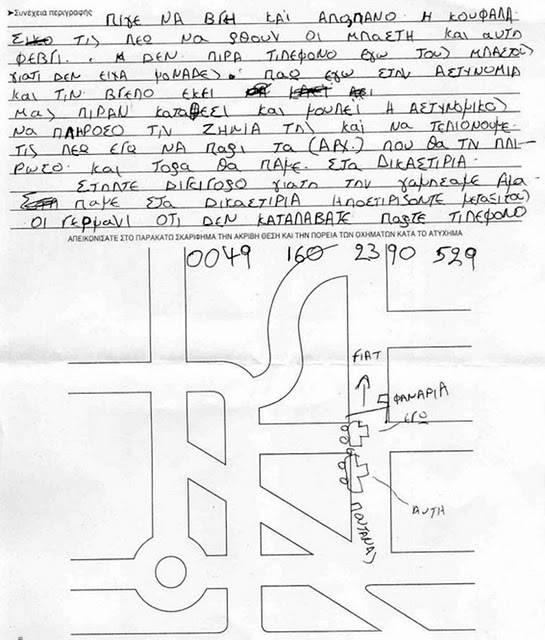 ➤Συνέχεια περιγραφής
ΠΙΓΕ ΝΑ ΒΓΗ ΚΑΙ ΑΠΩΠΑΝΟ. Η ΚΟΥΦΑΛΑ
ΤΙΣ ΛΕΩ ΝΑ ρθουν ΟΙ ΜΠΑΣΤΗ Και αυτη
ΦΕΒΓΙ. ΔΕΝ ΠΙΡΑ ΤΙΛΕΦΟΝΟ εγω ΤΟΥΣ ΜΠΑΣΤΟΥΣ
γΙΑΤΙ ΔΕΝ ΕΙΧΑ μΟΝΑΔΕς. ΠΑΩ εγω ΣΤΗΝ ΑΣΤΥΝΟΜΙΑ
Και ΤΙΝ ΒΓΕΠΟ ΕΚΕΙ
Μας ΠΙΡΑΝ ΚΑΤΑΘΕΣΙ Και μουΛΕΙ Η ΑΣΤΥΝΟΜΙΚΟς
ΝΑ ΠΛΗΡΟΣΟ ΤΙΝ ΖΗΜΙΑ ΤΗς Και ΝΑ ΤΕΛΙΟΝΟΥΜΕ.
ΤΙς ΛΕΩ ΕΓΩ ΝΑ ΠΑΡΙ ΤΑ (ΑΡΧ.) ΠΟΥ ΘΑ ΤΗ ΠΛΙ-
ΡΩΣΟ. Και ΤΟΡΑ ΘΑ ΠΑΜΕ. ΣΤΑ ΔΙΚΑΣΤΙΡΙΑ.
ΣΤΙΛΤΕ ΔΙΓΙΓΟΡΟ γιατι ΤΗΝ γαμΗΣΑΜΕ ΑΜΑ
ΠΑΜΕ ΣΤΑ ΔΙΚΑΣΤΙΡΙΑ
ΟΙ ΓΕΡΜΑΝΙ ΟΤΙ ΔΕΝ ΚΑΤΑΛΑΒΑΤΕ ΠΑΡΤΕ ΤΙΛΕΦΟΝΟ
ΑΠΕΙΚΟΝΙΣΑΤΕ ΣΤΟ ΠΑΡΑΚΑΤΩ ΣΚΑΡΙΦΗΜΑ ΤΗΝ ΑΚΡΙΒΗ ΘΕΣΗ ΚΑΙ ΤΗΝ ΠΟΡΕΙΑ ΤΩΝ ΟΧΗΜΑΤΩΝ ΚΑΤΑ ΤΟ ΑΤΥΧΗΜΑ
0049 160 2390 529
FIAT
ΦΑΝΑΡΙΑ
εγω
ΑΥΤΗ
ΠΟΥΤΑΝΑ